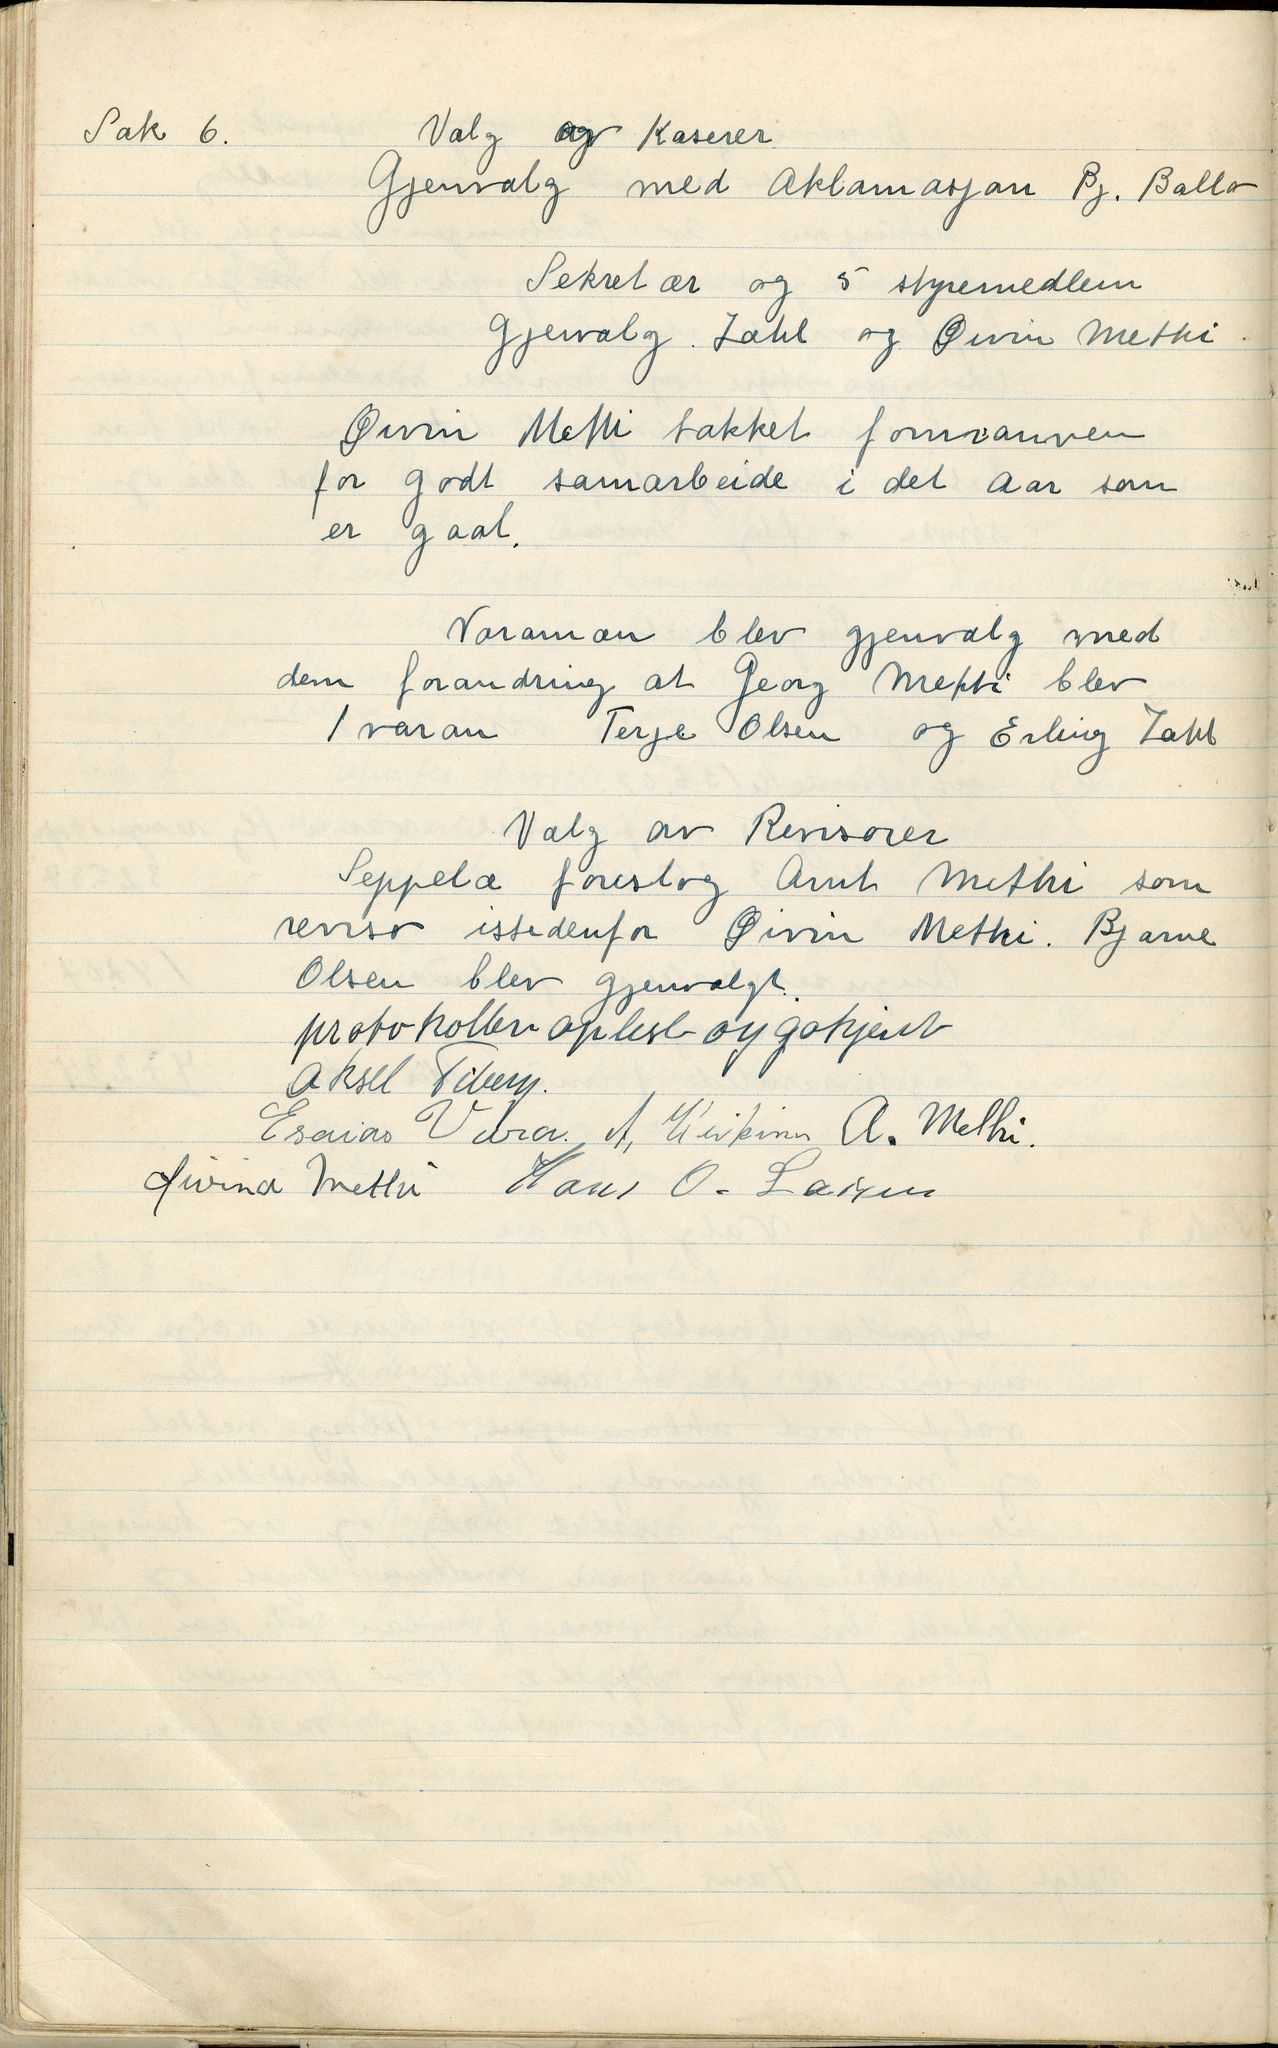 Sak 6. Valg og Kaserer
Gjenvalg med Aklamasjon Bj. Ballo
Sekretær og 5 styremedlem
gjenvalg. Zahl og Øivin Methi.
Øivin Methi takket formanven
for godt samarbeide i det Aar som
er gaat.
Varaman blev gjenvalg med
dem forandring at Georg Methi blev
1 varan Terje Olsen og Erling Zahl
Valg av Revisorer
Seppelæ foreslog Arnt Methi som
reviso issedenfor Øivin Methi. Bjarne
Olsen blev gjenvalgt.
protokollen oplest og gokjent
Aksel Fiberg.
Esaias A. A. Methi.
Øivind Methi Hans O. Larsen